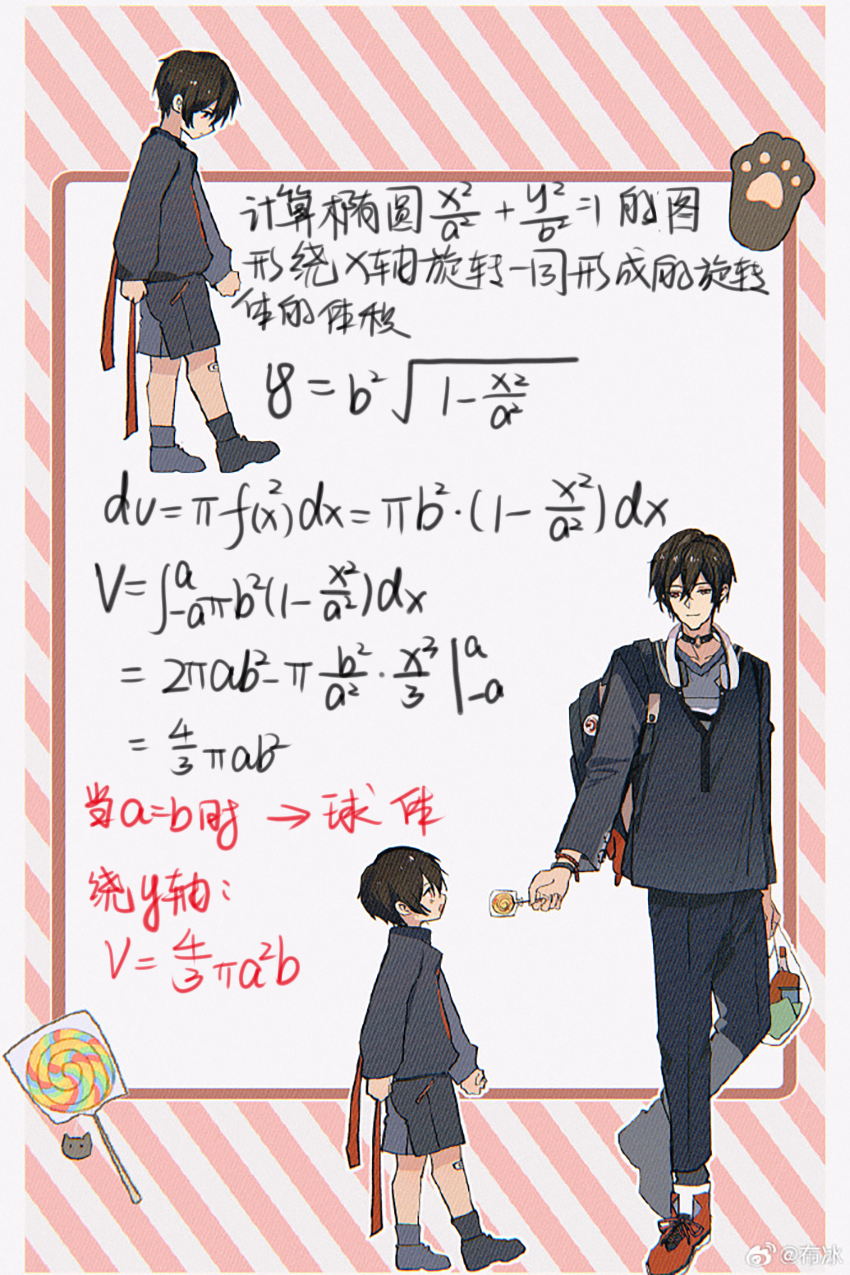 计算椭圆 x²/a² + y²/b² =1 的图
形绕x轴旋转一周形成的旋转
体的体积
y = b²√(1-x²/a²)
dv=πf(x²)dx=πb²·(1-x²/a²)dx
V=∫_{-a}^{a}πb²(1-x²/a²)dx
= 2πab²-π b²/a² · x³/3 |_{-a}^{a}
= 4/3 πab²
当a=b时 → 球体
绕y轴:
V= 4/3 πa²b
@布冰